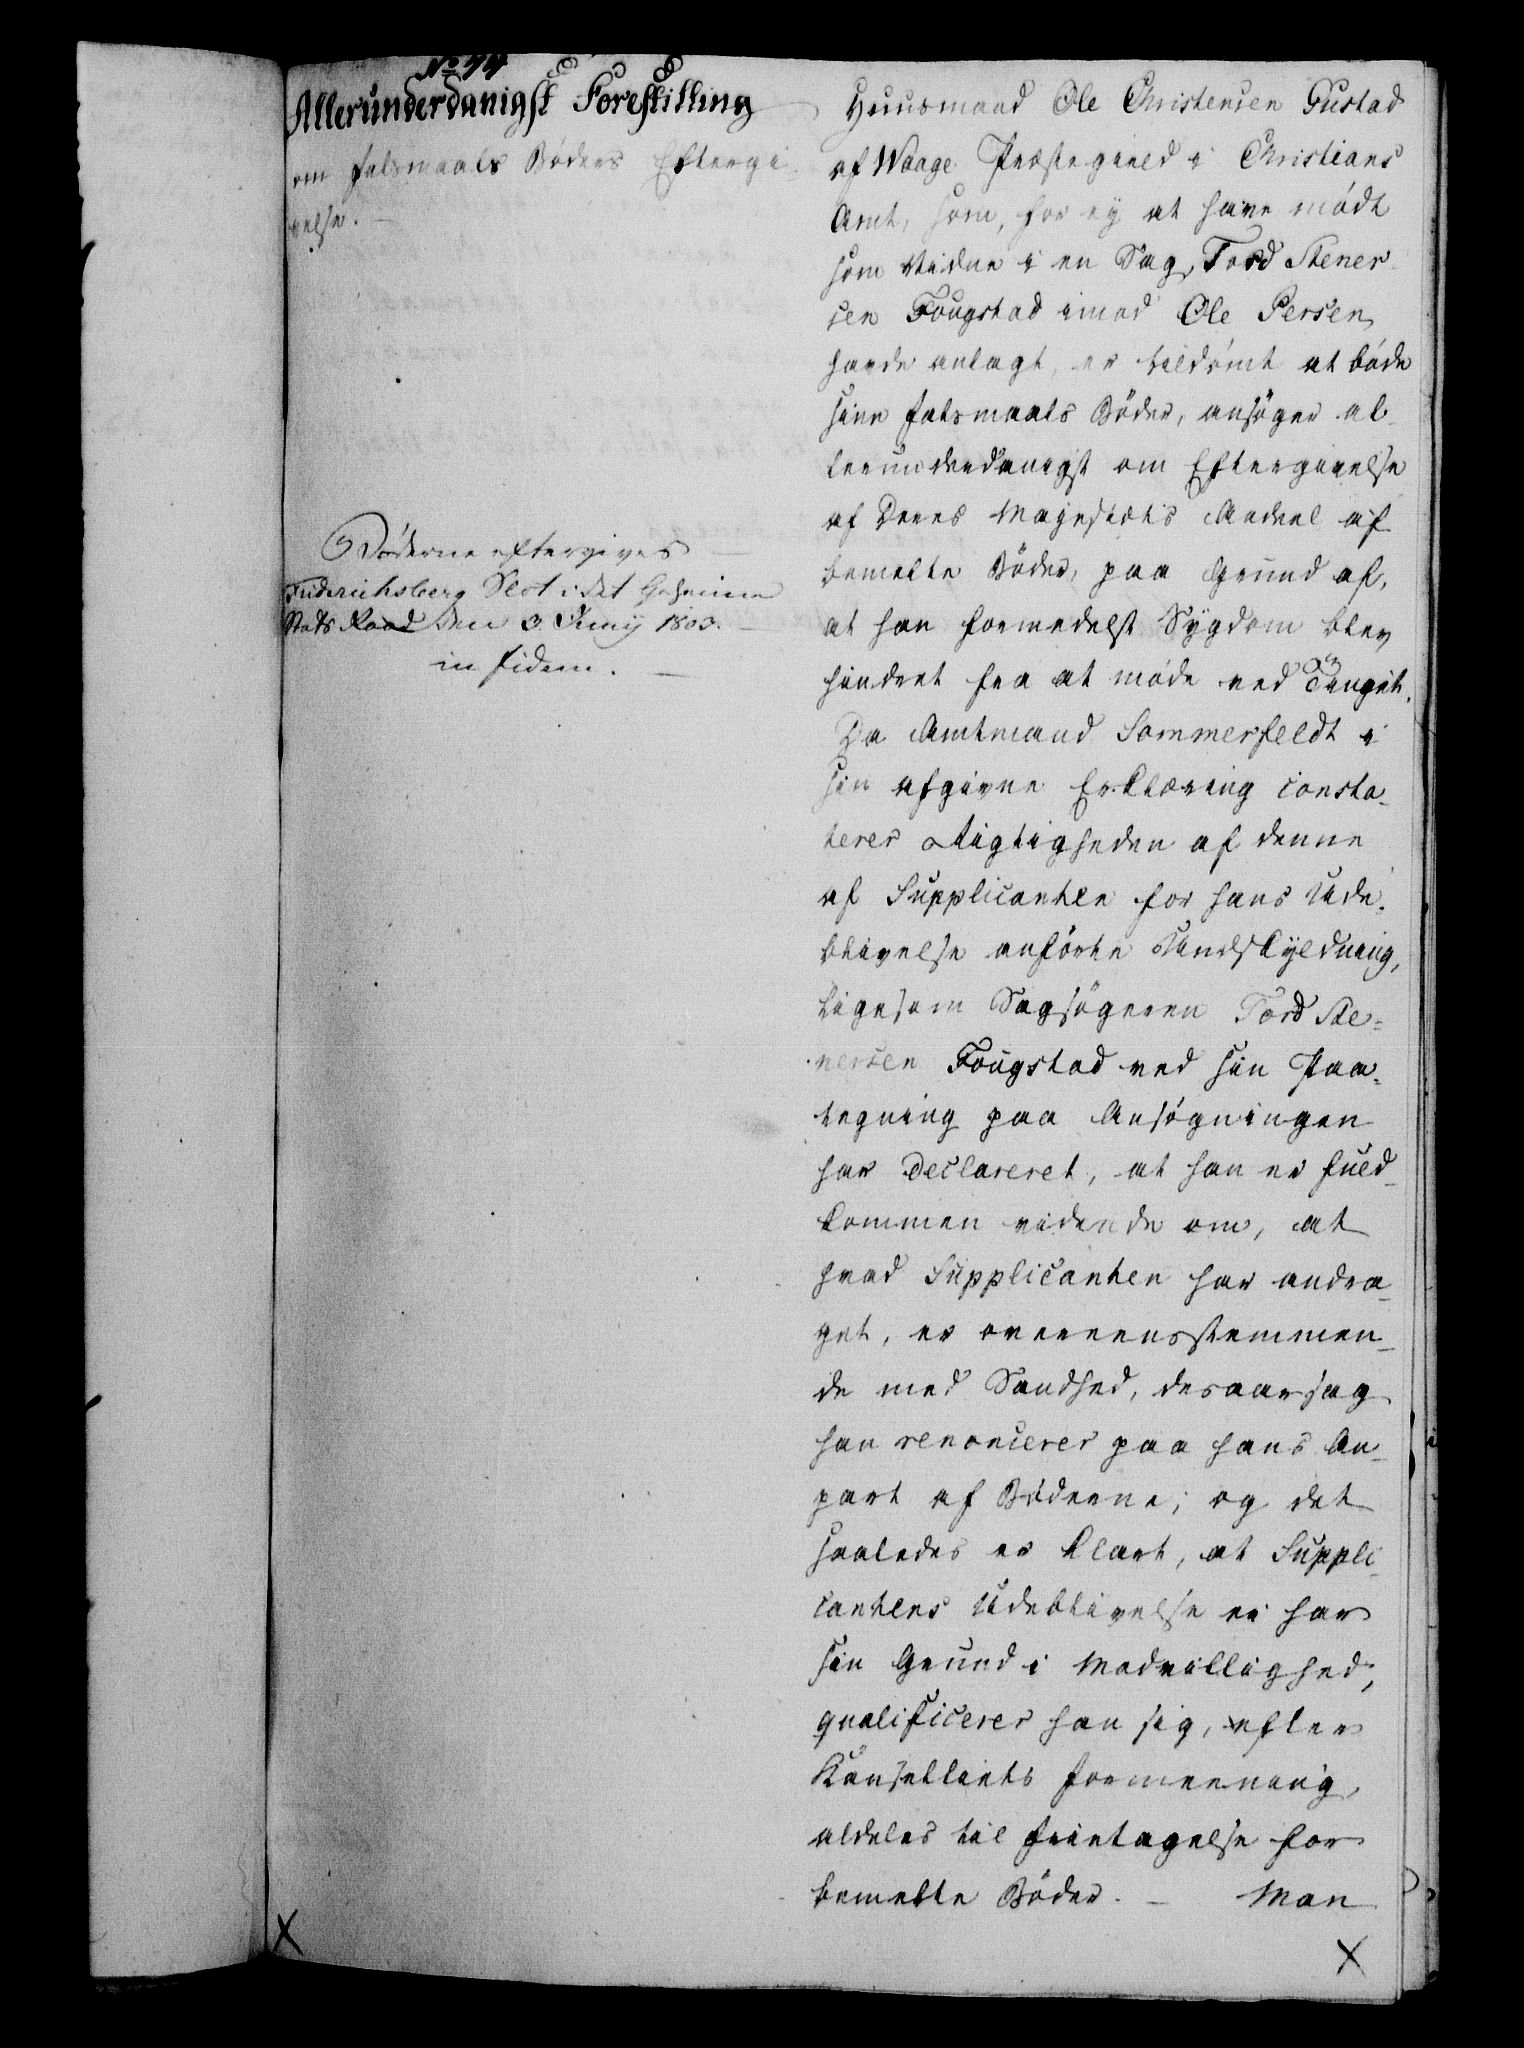 No 44
Allerunderdanigst Forestilling
om Falsmaals Bøders Eftergi-
velse. —
Bøderne eftergives —
Friderichsberg Slot i det Geheime
Stats Raad den 3 Junij 1803. —
in fidem. —
Huusmand Ole Christensen Gustad
af Waage Præstegield i Christians
Amt, som, for ey at have mødt
som Vidne i en Sag, Tord Stener-
sen Fougstad imod Ole Persen
havde anlagt, er tildømt at bøde
sine Falsmaals Bøder, ansøger al-
lerunderdanigst om Eftergivelse
af Deres Majestæts Andeel af
bemelte Bøder, paa Grund af,
at han formedelst Sygdom blev
hindret fra at møde ved Tinget.
Da Amtmand Sommerfeldt i
sin afgivne Erklæring consta-
terer Rigtigheden af denne
af Supplicanten for hans Ude-
blivelse anførte Undskyldning,
ligesom Sagsøgeren Tord Ste-
nersen Fougstad ved sin Paa-
tegning paa Ansøgningen
har declareret, at han er fuld-
kommen vidende om, at
hvad Supplicanten har andra-
get, er overeensstemmen-
de med Sandhed, desaarsag
han renoncerer paa hans An-
part af Bøderne; og det
saaledes er klart, at Suppli-
cantens Udeblivelse ei har
sin Grund i Modvillighed,
qualificerer han sig, efter
Kanselliets Formeening,
aldeles til Fritagelse for
bemelte Bøder. — Man
X
X